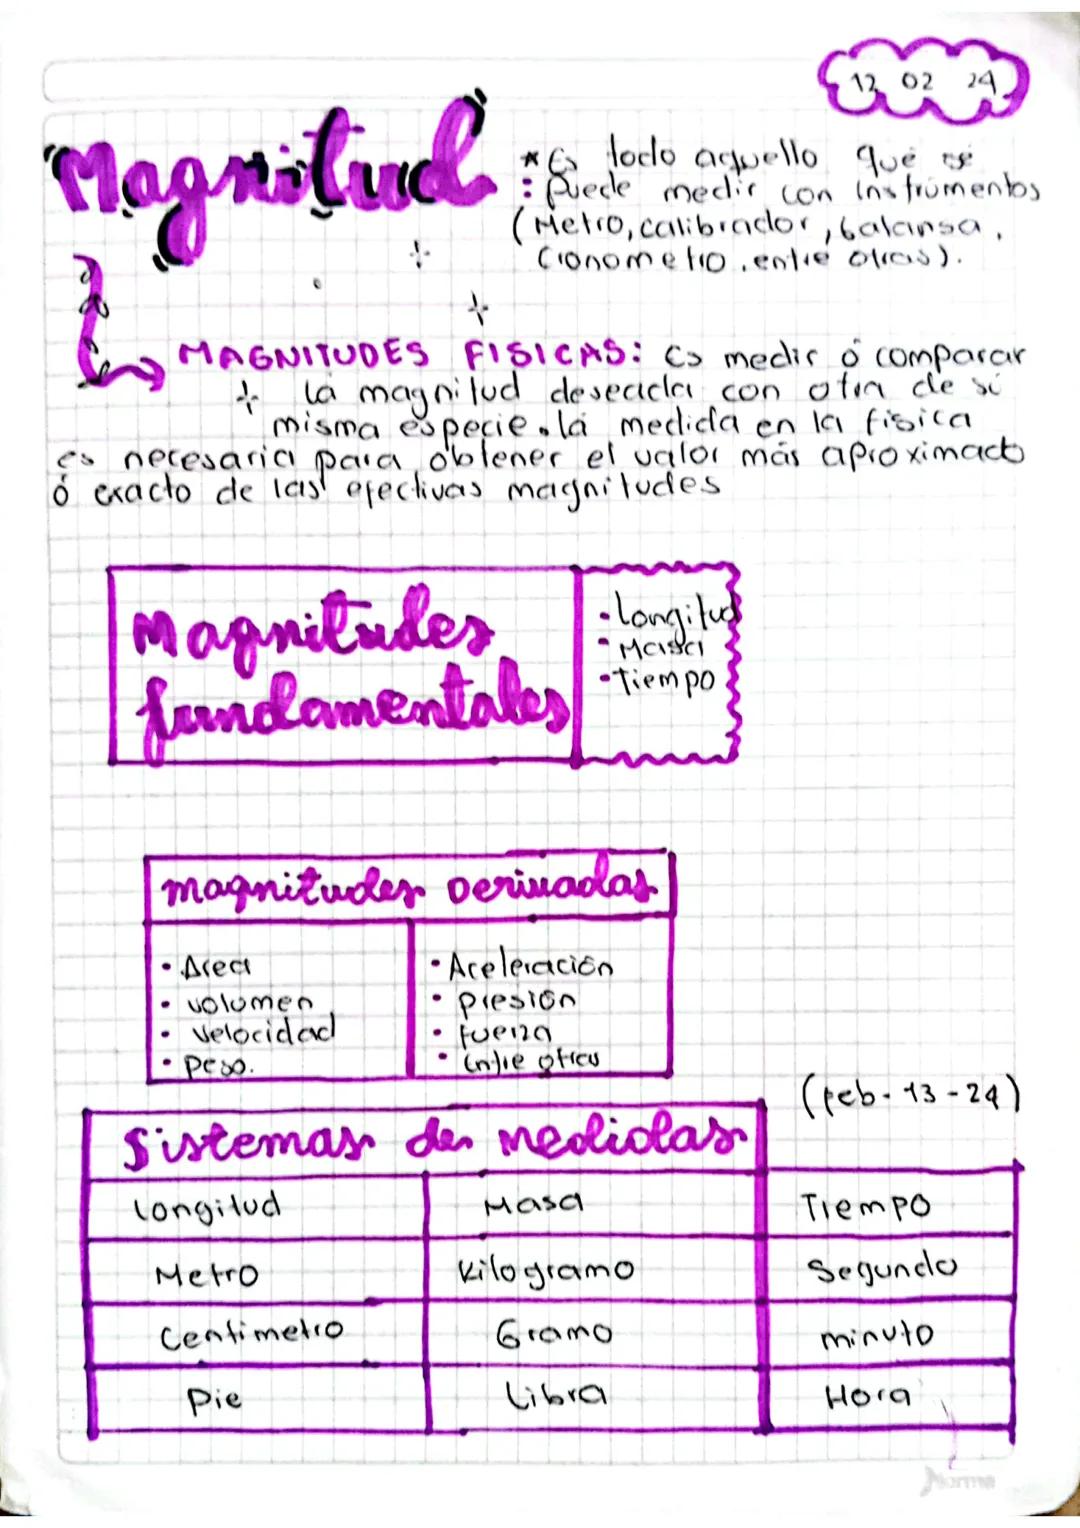 12 02 24
"Magnitud"
* Es todo aquello que se
: Puede medir con instrumentos
(Metro, calibrador, balansa,
Cronometro, entre otras).
MAGNITUDES FISICAS: Es medir ó comparar
la magnitud deseada con otra de sú
misma especie. la medida en la fisica
es necesaria para obtener el valor más aproximado
ó exacto de las efectivas magnitudes
Magnitudes
fundamentales
• Longitud
• Masa
• Tiempo
magnitudes Derivadas
• Area
• volumen
• Velocidad
• Peso.
• Aceleración
• presión
• fuerza
• Entre otras
(feb - 13 - 24)
Sistemas de medidas
Longitud Masa Tiempo
Metro Kilogramo Segundo
Centimetro Gramo minuto
Pie Libra Hora
Norma